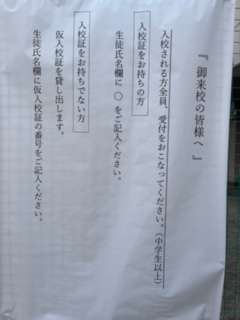 『御来校の皆様へ』
入校される方全員、受付をおこなってください。(中学生以上)
入校証をお持ちの方
生徒氏名欄に ○ をご記入ください。
入校証をお持ちでない方
仮入校証を貸し出します。
生徒氏名欄に仮入校証の番号をご記入ください。